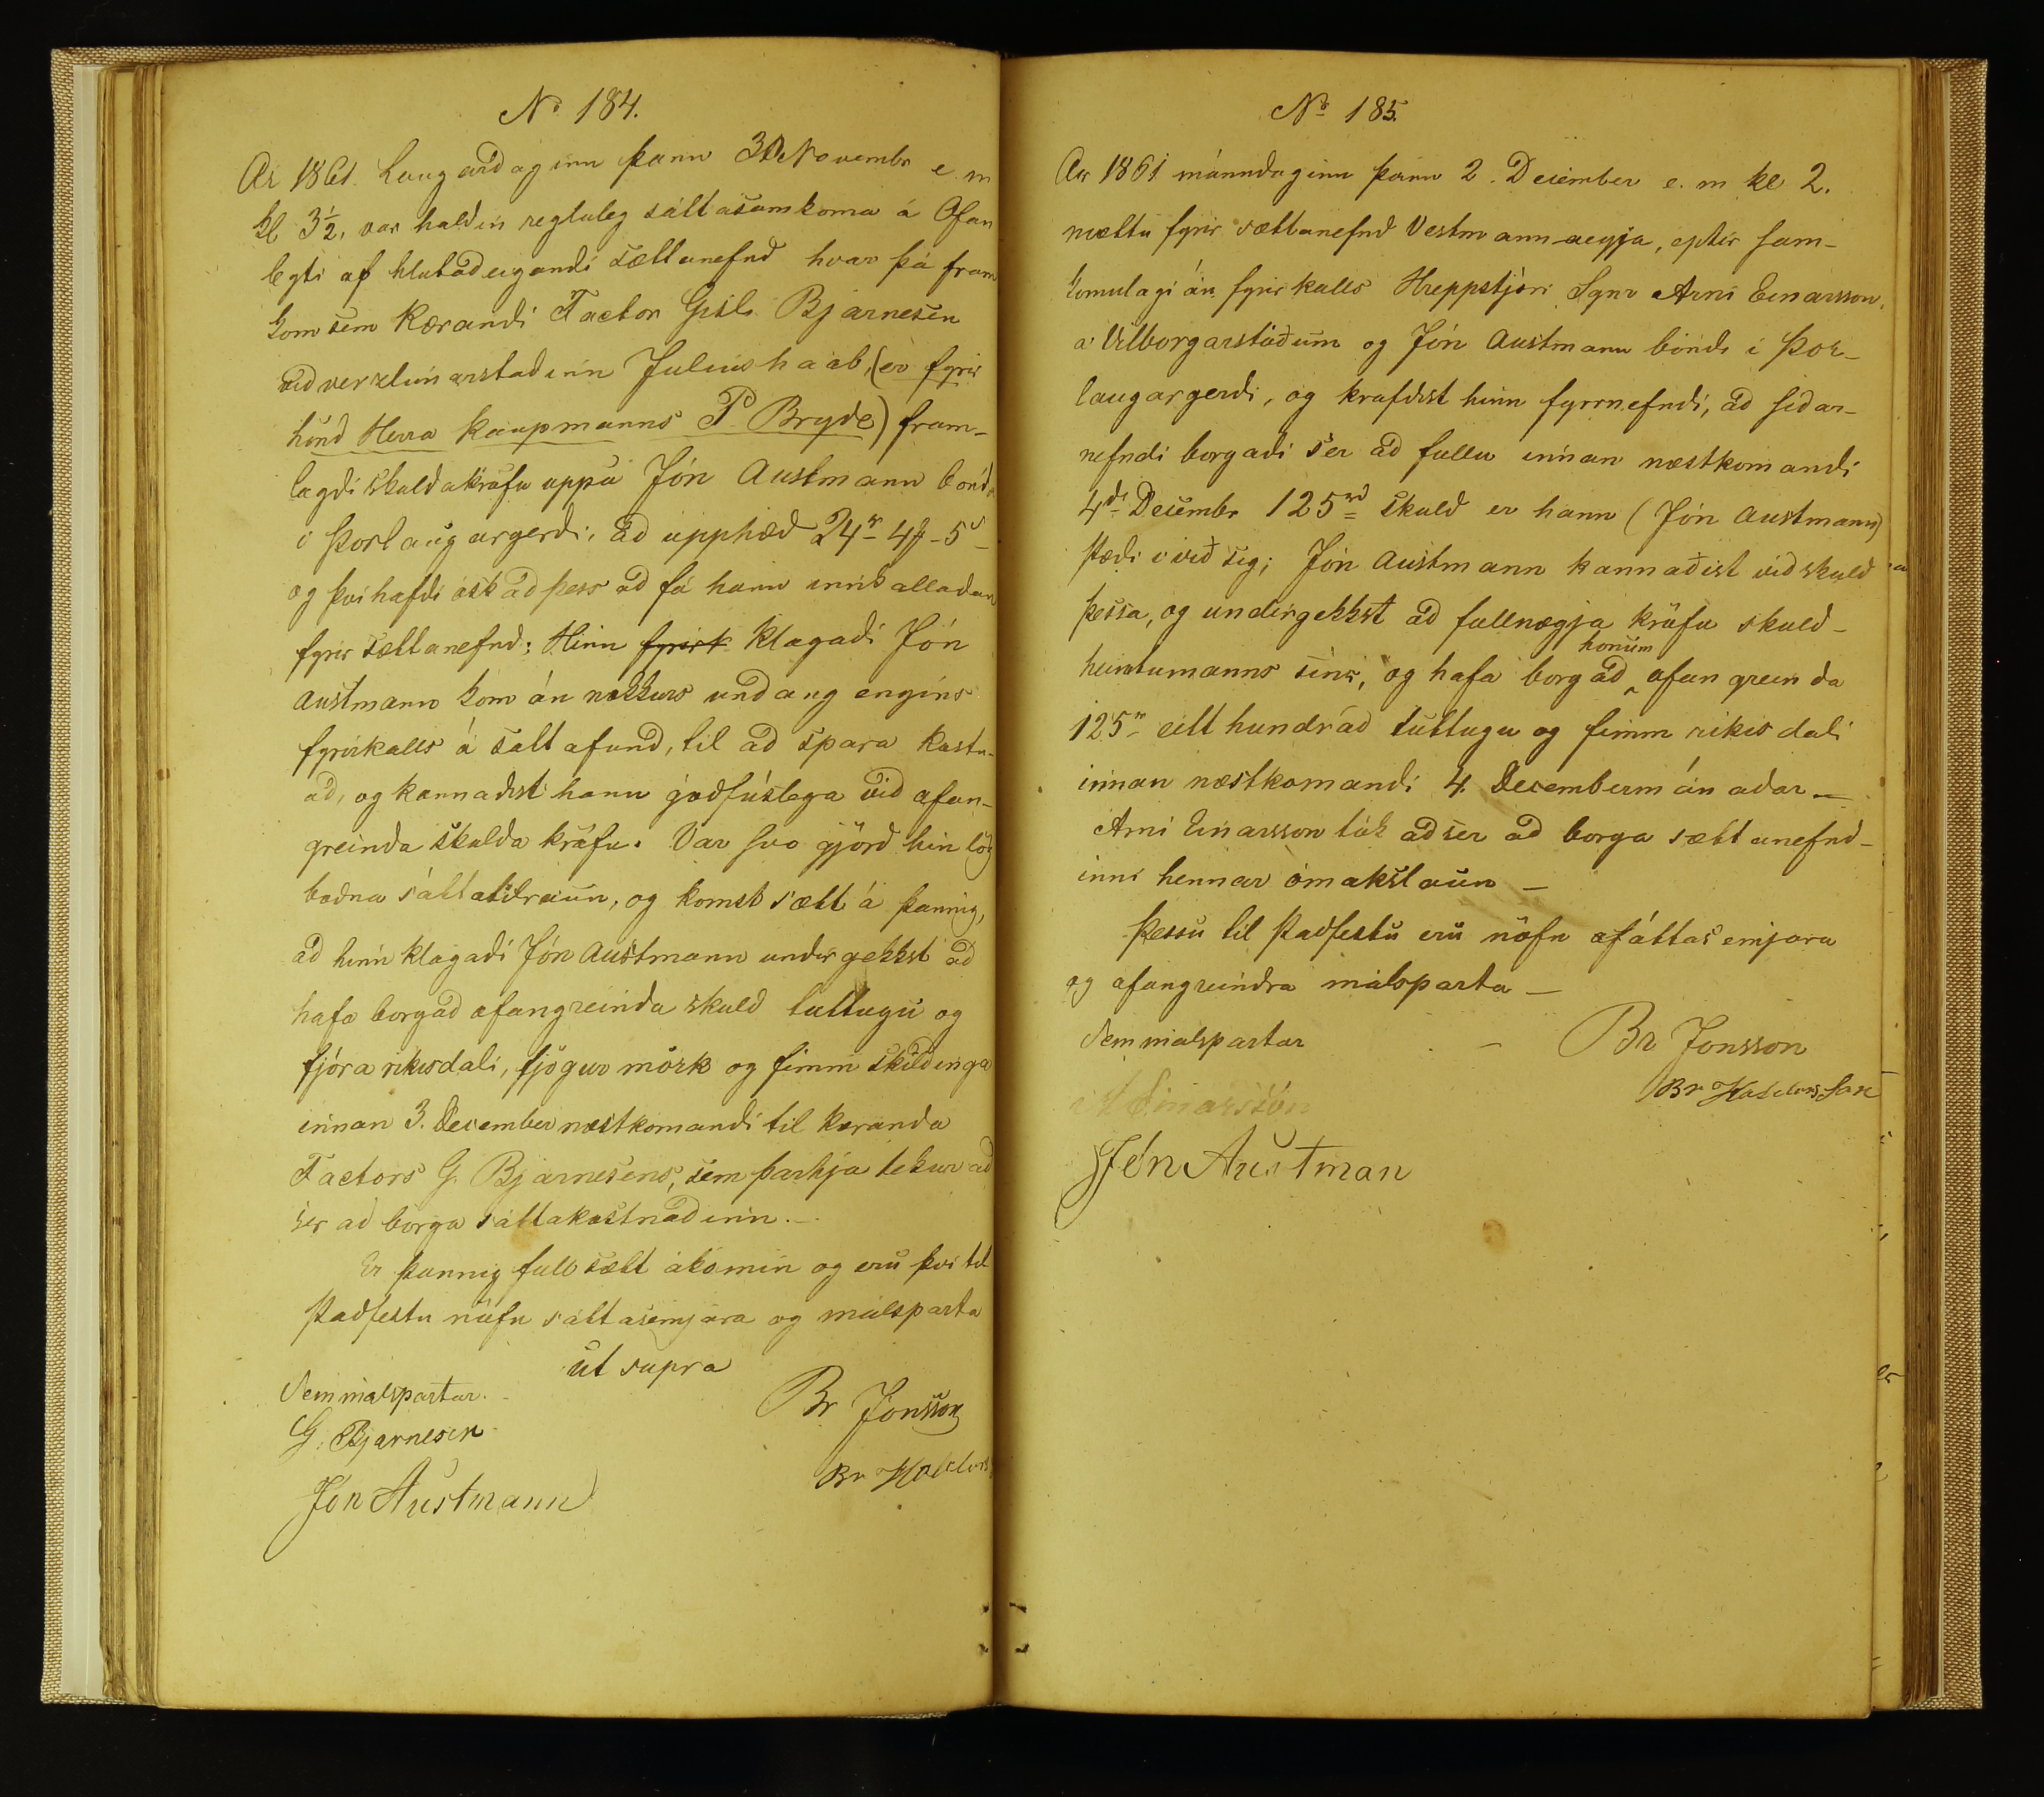 No 184.
Ar 1861. Laugardaginn þann 30 Novembr e. m
kl 3½, var haldin regluleg sáttasamkoma á Ofan
legti af hlutadeigandi sættanefnd hvar þá fram
kom sem Kærandi Factor Gisli Bjarnesen
við verzlunarstaðinn Juliushaab, (er fyrir
hönd Herra Kaupmanns P. Bryde) fram-
lagði skuldakröfu uppá Jón Austmann bónda
i Þorlaugargerdi, ad upphæd 24r 4 5s
og því hafdi óskad þess ad fá hann innkalladan
fyrir sættanefnd; Hinn fyrirk klagadi Jón
Austmann kom án nokkurs undang engins
fyrirkalls á sattafund, til ad spara kostn-
ad, og kannadist hann góðfúslega við ofan-
greinda skuldakröfu. Var svo gjörd hin lög
bodna sáttatilraun, og komst sætt á þannig,
ad hinn klagadi Jón Austmann undirgekkst ad
hafa borgad ofangreinda skuld tuttugu og
fjóra rikisdali, fjögur mörk og fimm skildinga
innan 3. December næstkomandi til kæranda
Factors G. Bjarnesens, sem þarhja tekur ad
ser ad borga sáttakostnadinn. —
Er þannig full sætt ákomin og eru því til
stadfestu nöfn sáttasemjara og málsparta
ut supra
Sem málspartar.
Br Jonsson
G. Bjarnesen
Br Halldors
Jón Austmann
No 185.
Ar 1861 mánudaginn þann 2. December e. m kl 2.
mættu fyrir sættanefnd Vestmannaeyja, eptir sam-
komulagi án fyrirkalls Hreppstjóri Sgnr Arni Einarsson,
a Vilborgarstöðum og Jón Austmann bóndi i Þor-
laugargerdi, og krafdist hinn fyrrnefndi, ad sidar-
nefndi borgadi ser ad fullu innan næstkomandi
4di Decembr 125rd skuld er hann (Jón Austmann)
stædi i við sig; Jón Austmann kannaðist við skuld
þessa, og undirgekkst ad fullnægja kröfu skuld-
honum
heimtumanns sins, og hafa borgad ofangreinda
125r eitt hundrad tuttugu og fimm rikisdali
innan næstkomandi 4. Decembermánadar —
Arni Einarsson tók ad ser ad borga sættanefnd-
inni hennar ómakslaun —
Þessu til stadfestu eru nöfn sáttasemjara
og ofangreindra málsparta —
Sem malspartar
Br Jonsson
Br Halldors Son
A Einarsson
Jón Austman